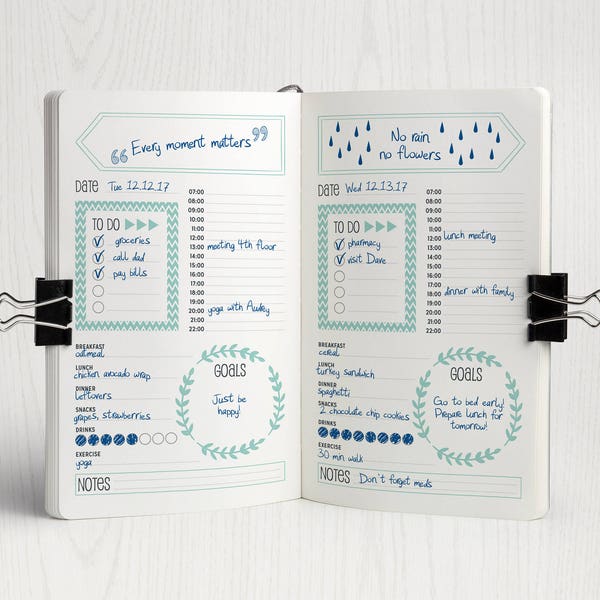 “ Every moment matters ”
DATE Tue 12.12.17
TO DO
groceries
call dad
pay bills
07:00
08:00
09:00
10:00
11:00
12:00
13:00 meeting 4th floor
14:00
15:00
16:00
17:00
18:00
19:00
20:00 yoga with Audrey
21:00
22:00
BREAKFAST
oatmeal
LUNCH
chicken avocado wrap
DINNER
leftovers
SNACKS
grapes, strawberries
DRINKS
EXERCISE
yoga
GOALS
Just be
happy!
NOTES
No rain
no flowers
DATE Wed 12.13.17
TO DO
pharmacy
visit Dave
07:00
08:00
09:00
10:00
11:00
12:00 lunch meeting
13:00
14:00
15:00
16:00
17:00
18:00 dinner with family
19:00
20:00
21:00
22:00
BREAKFAST
cereal
LUNCH
turkey sandwich
DINNER
spaghetti
SNACKS
2 chocolate chip cookies
DRINKS
EXERCISE
30 min. walk
GOALS
Go to bed early!
Prepare lunch for
tomorrow!
NOTES Don't forget meds